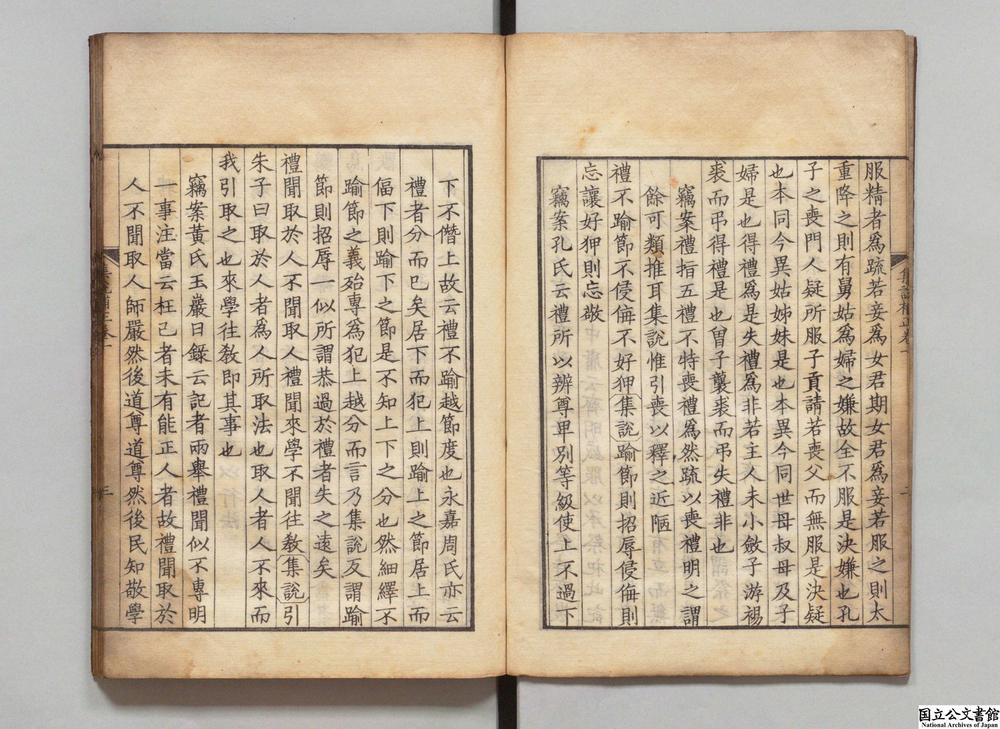 服精者爲疏若妾爲女君期女君爲妾若服之則太
重降之則有舅姑爲婦之嫌故全不服是決嫌也孔
子之喪門人疑所服子貢請若喪父而無服是決疑
也本同今異姑姊妹是也本異今同世母叔母及子
婦是也得禮爲是失禮爲非若主人未小斂子游裼
裘而弔得禮是也曾子襲裘而弔失禮非也
竊案禮指五禮不特喪禮爲然疏以喪禮明之謂
餘可類推耳集說惟引喪以釋之近陋
禮不踰節不侵侮不好狎集說踰節則招辱侵侮則
忘讓好狎則忘敬
竊案孔氏云禮所以辨尊卑別等級使上不過下
下不僭上故云禮不踰越節度也永嘉周氏亦云
禮者分而已矣居下而犯上則踰上之節居上而
偪下則踰下之節是不知上下之分也然細繹不
踰節之義殆專爲犯上越分而言乃集說反謂踰
節則招辱一似所謂恭過於禮者失之遠矣
禮聞取於人不聞取人禮聞來學不聞往敎集說引
朱子曰取於人者爲人所取法也取人者人不來而
我引取之也來學往敎即其事也
竊案黃氏玉巖日錄云記者兩舉禮聞似不專明
一事注當云枉己者未有能正人者故禮聞取於
人不聞取人師嚴然後道尊道尊然後民知敬學
国立公文書館
National Archives of Japan